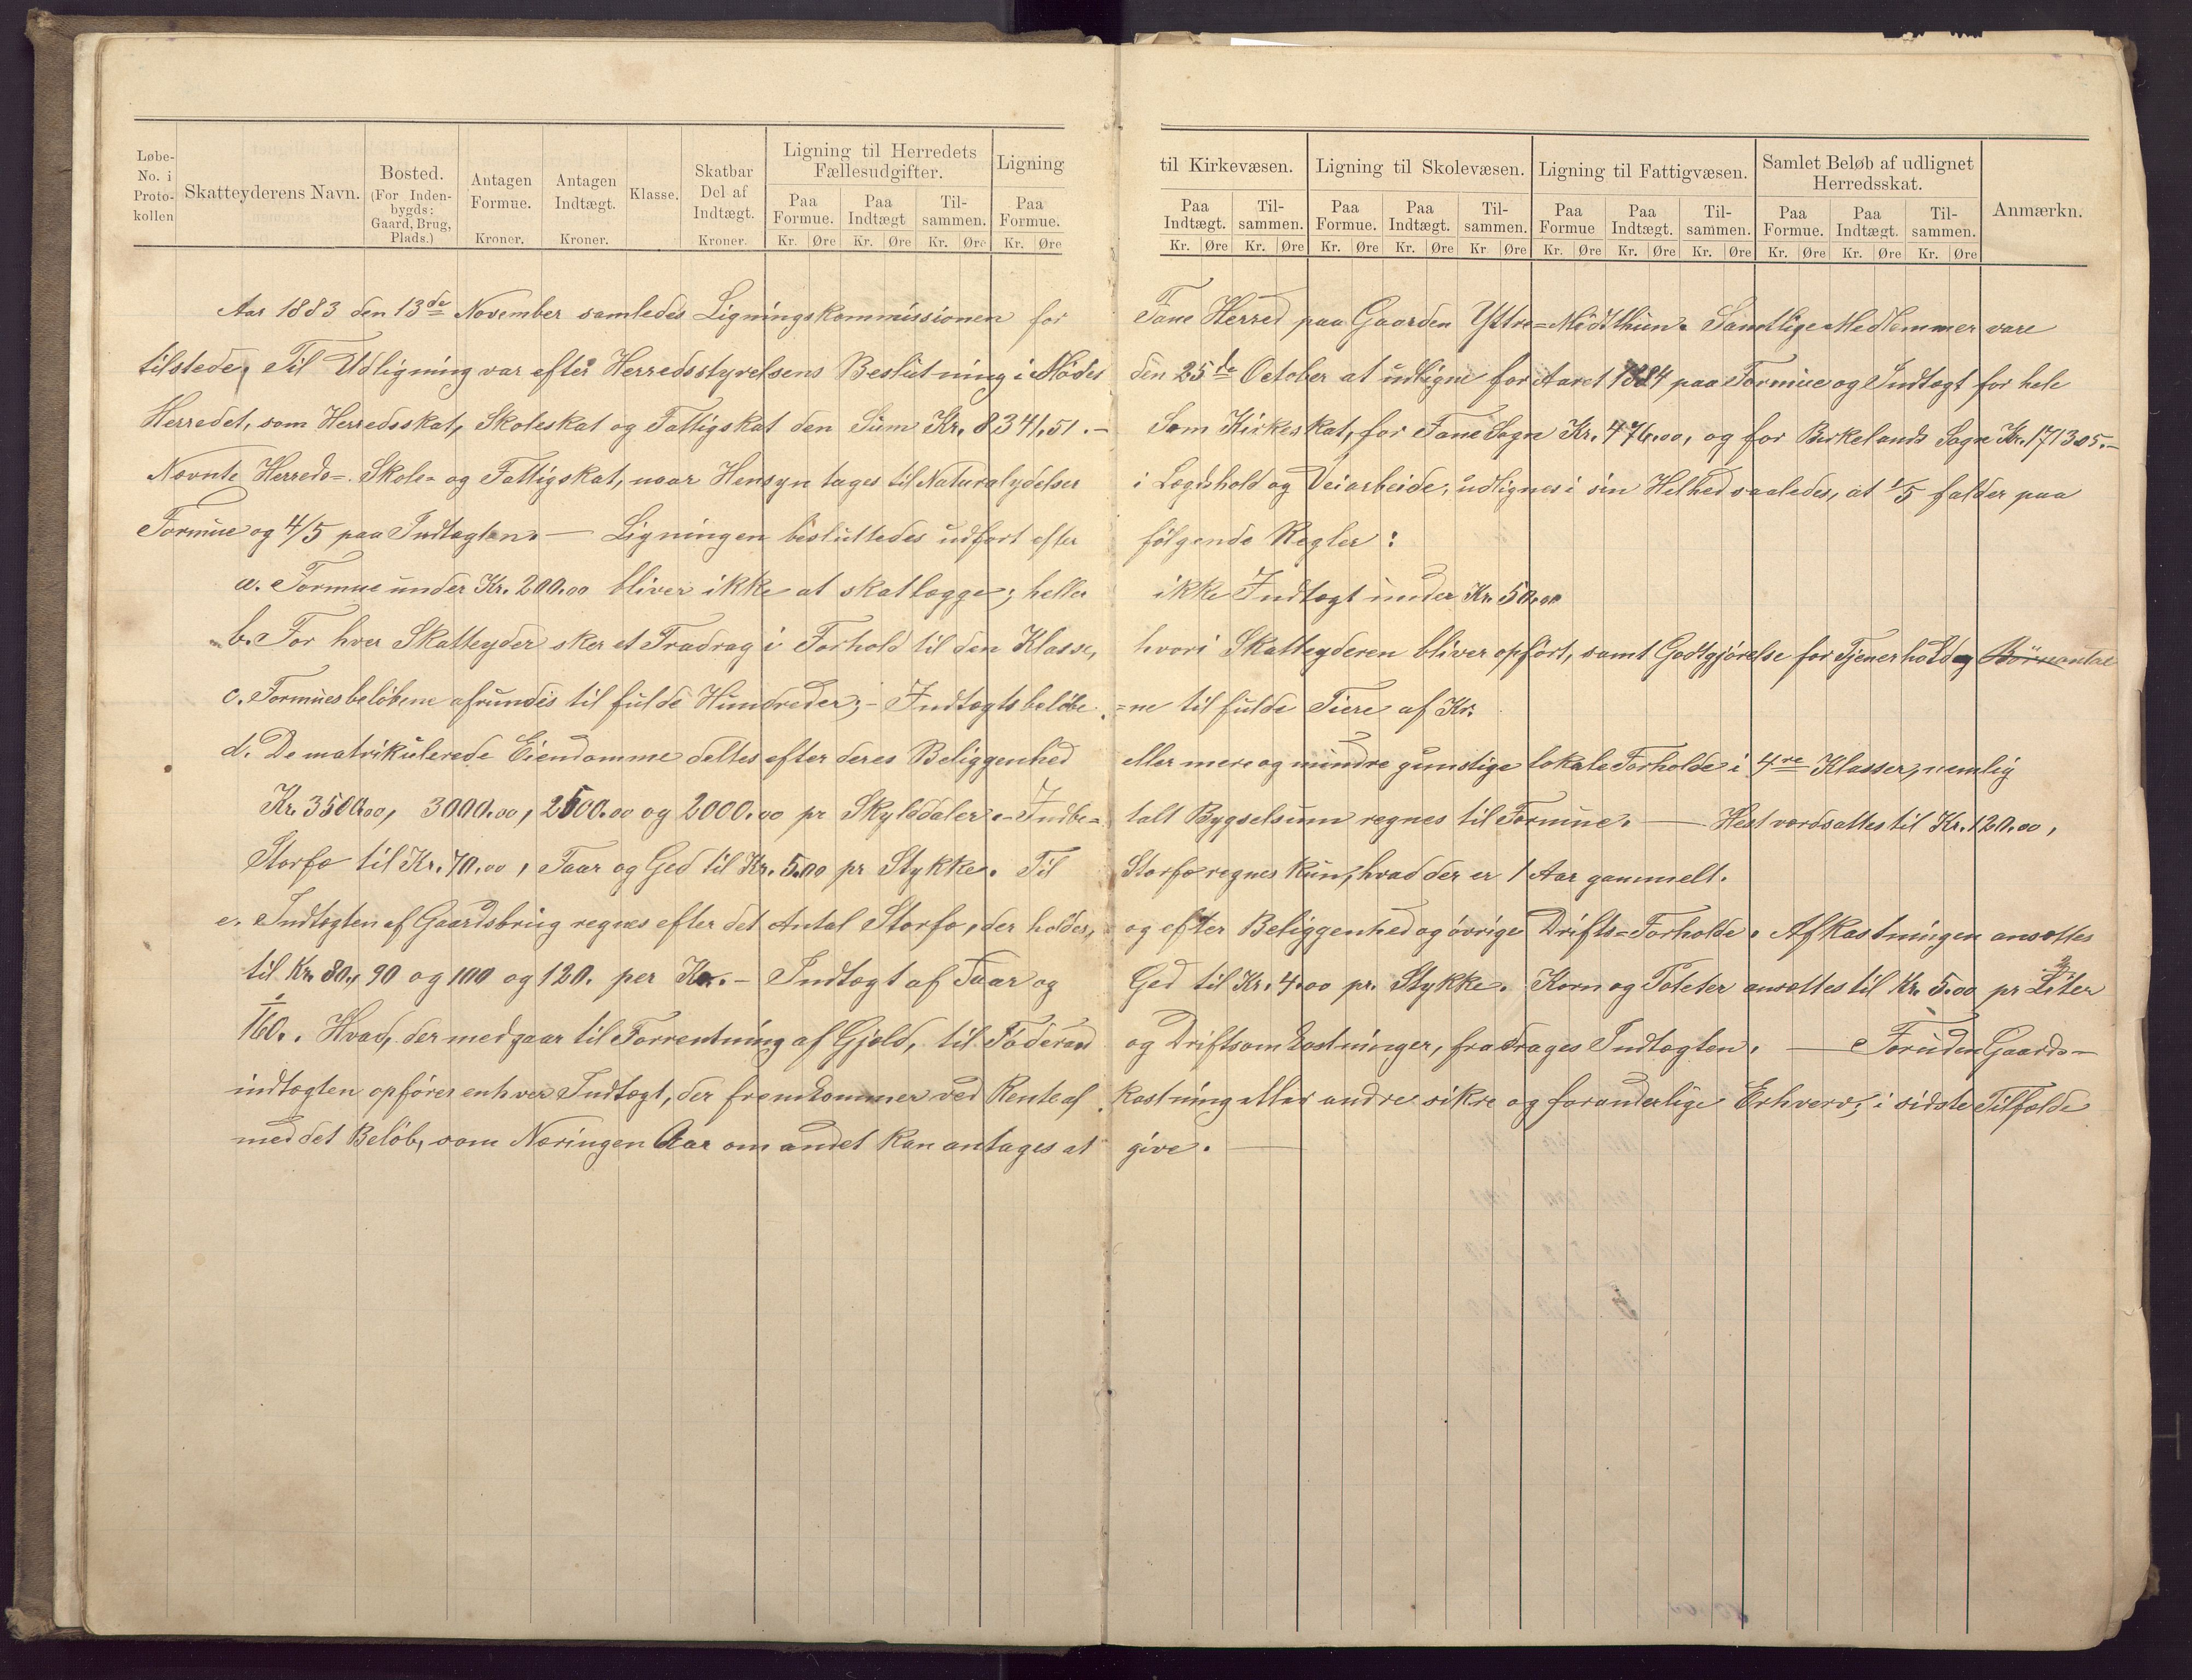 Løbe-No. i Proto-kollen
Skatteyderens Navn.
Bosted. (For Inden-bygds: Gaard, Brug, Plads.)
Antagen Formue. Kroner.
Antagen Indtægt. Kroner.
Klasse.
Skatbar Del af Indtægt. Kroner.
Ligning til Herredets Fællesudgifter.
Paa Formue. Paa Indtægt Til-sammen.
Kr. Øre Kr. Øre Kr. Øre
Ligning
Paa Formue.
Kr. Øre
til Kirkevæsen.
Paa Indtægt. Til-sammen.
Kr. Øre Kr. Øre
Ligning til Skolevæsen.
Paa Formue. Paa Indtægt. Til-sammen.
Kr. Øre Kr. Øre Kr Øre
Ligning til Fattigvæsen.
Paa Formue Paa Indtægt. Til-sammen.
Kr. Øre Kr. Øre Kr. Øre
Samlet Beløb af udlignet Herredsskat.
Paa Formue. Paa Indtægt. Til-sammen.
Kr. Øre Kr. Øre Kr. Øre
Anmærkn.
Aar 1883 den 13de November samledes Ligningskommissionen for Fane Herred paa Gaarden Yttre=Midtthun. Samtlige Medlemmer vare
tilstede. Til Udligning var efter Herredsstyrelsens Beslutning i Mødes den 25de October at udligne for Aaret 1884 paa Formue og Indtægt for hele
Herredet, som Herredsskat, Skoleskat og Fattigskat den Sum Kr. 8341,51.– Som Kirkeskat, for Fane Sogn Kr. 476,00, og for Birkelands Sogn Kr. 171305.–
Nævnte Herreds=. Skole= og Fattigskat, naar Hensyn tages til Naturalydelser i Lægdshold og Veiarbeide, udlignes i sin Helhed saaledes, at 1/5 falder paa
Formue og 4/5 paa Indtægten. — Ligningen besluttedes udført efter følgende Regler:
a. Formue under Kr. 200.00 bliver ikke at skatlægge; heller ikke Indtægt under Kr. 50.00
b. For hver Skatteyder sker et Fradrag i Forhold til den Klasse, hvori Skatteyderen bliver opført, samt Godtgjørelse for Tjenerhold og Börneantal
c. Formuesbeløbene afrundes til fulde Hundreder; – Indtægtsbeløbe=ne til fulde Tiere af Kr.
d. De matrikulerede Eiendomme deltes efter deres Beliggenhed eller mere og mindre gunstige lokale Forholde i 4re Klasser, nemlig
Kr. 3500.00, 3000.00, 2500.00 og 2000.00 pr Skylddaler. – Indbe=talt Bygselsum regnes til Formue. — Hest værdsættes til Kr. 120.00,
Storfæ til Kr. 70.00, Faar og Ged til Kr. 5.00 pr Stykke. Til Storfæ regnes kun, hvad der er 1 Aar gammelt.
e. Indtægten af Gaardsbrug regnes efter det Antal Storfæ, der holdes, og efter Beliggenhed og øvrige Drifts=Forholde. Afkastningen ansættes
til Kr. 80., 90 og 100 og 120. per Ko. – Indtægt af Faar og Ged til Kr. 4.00 pr. Stykke. Korn og Poteter ansættes til Kr. 5.00 pr Liter
160.. Hvad, der medgaar til Forrentning af Gjæld, til Føderaad og Driftsomkostninger, fradrages Indtægten. — Foruden Gaards–
indtægten opføres enhver Indtægt, der fremkommer ved Rente af kastning eller andre sikre og foranderlige Erhverv; i sidste Tilfælde
med det Beløb, som Næringen Aar om andet kan antages at give. —